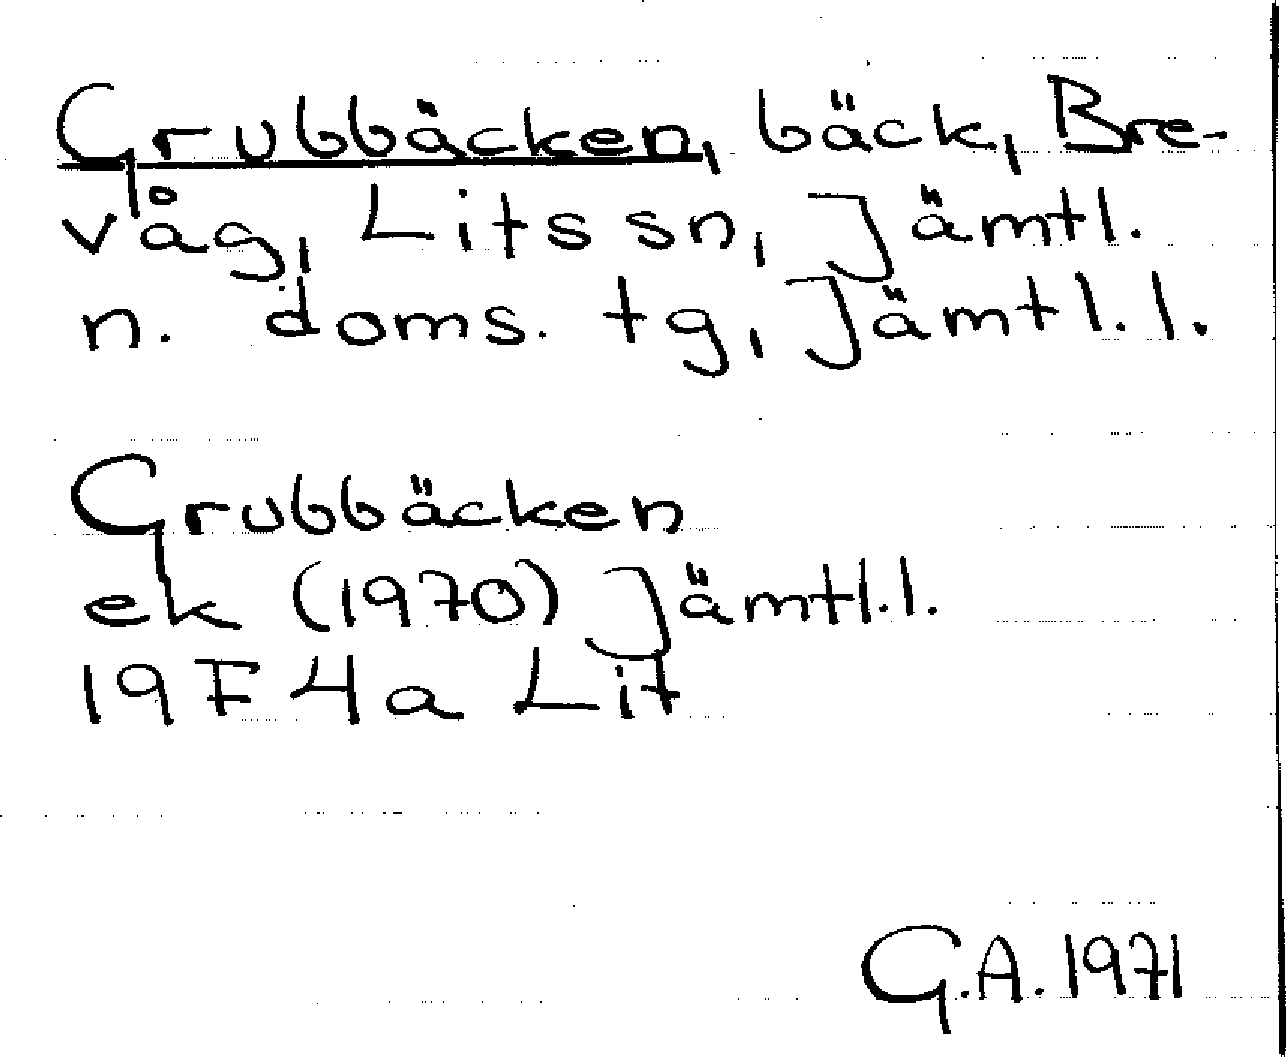 Grubbäcken, bäck, Bre-
våg, Lits sn, Jämtl.
n. doms. tg, Jämtl.l.
Grubbäcken
ek (1970) Jämtl.l.
19F 4a Lit
G.A. 1971